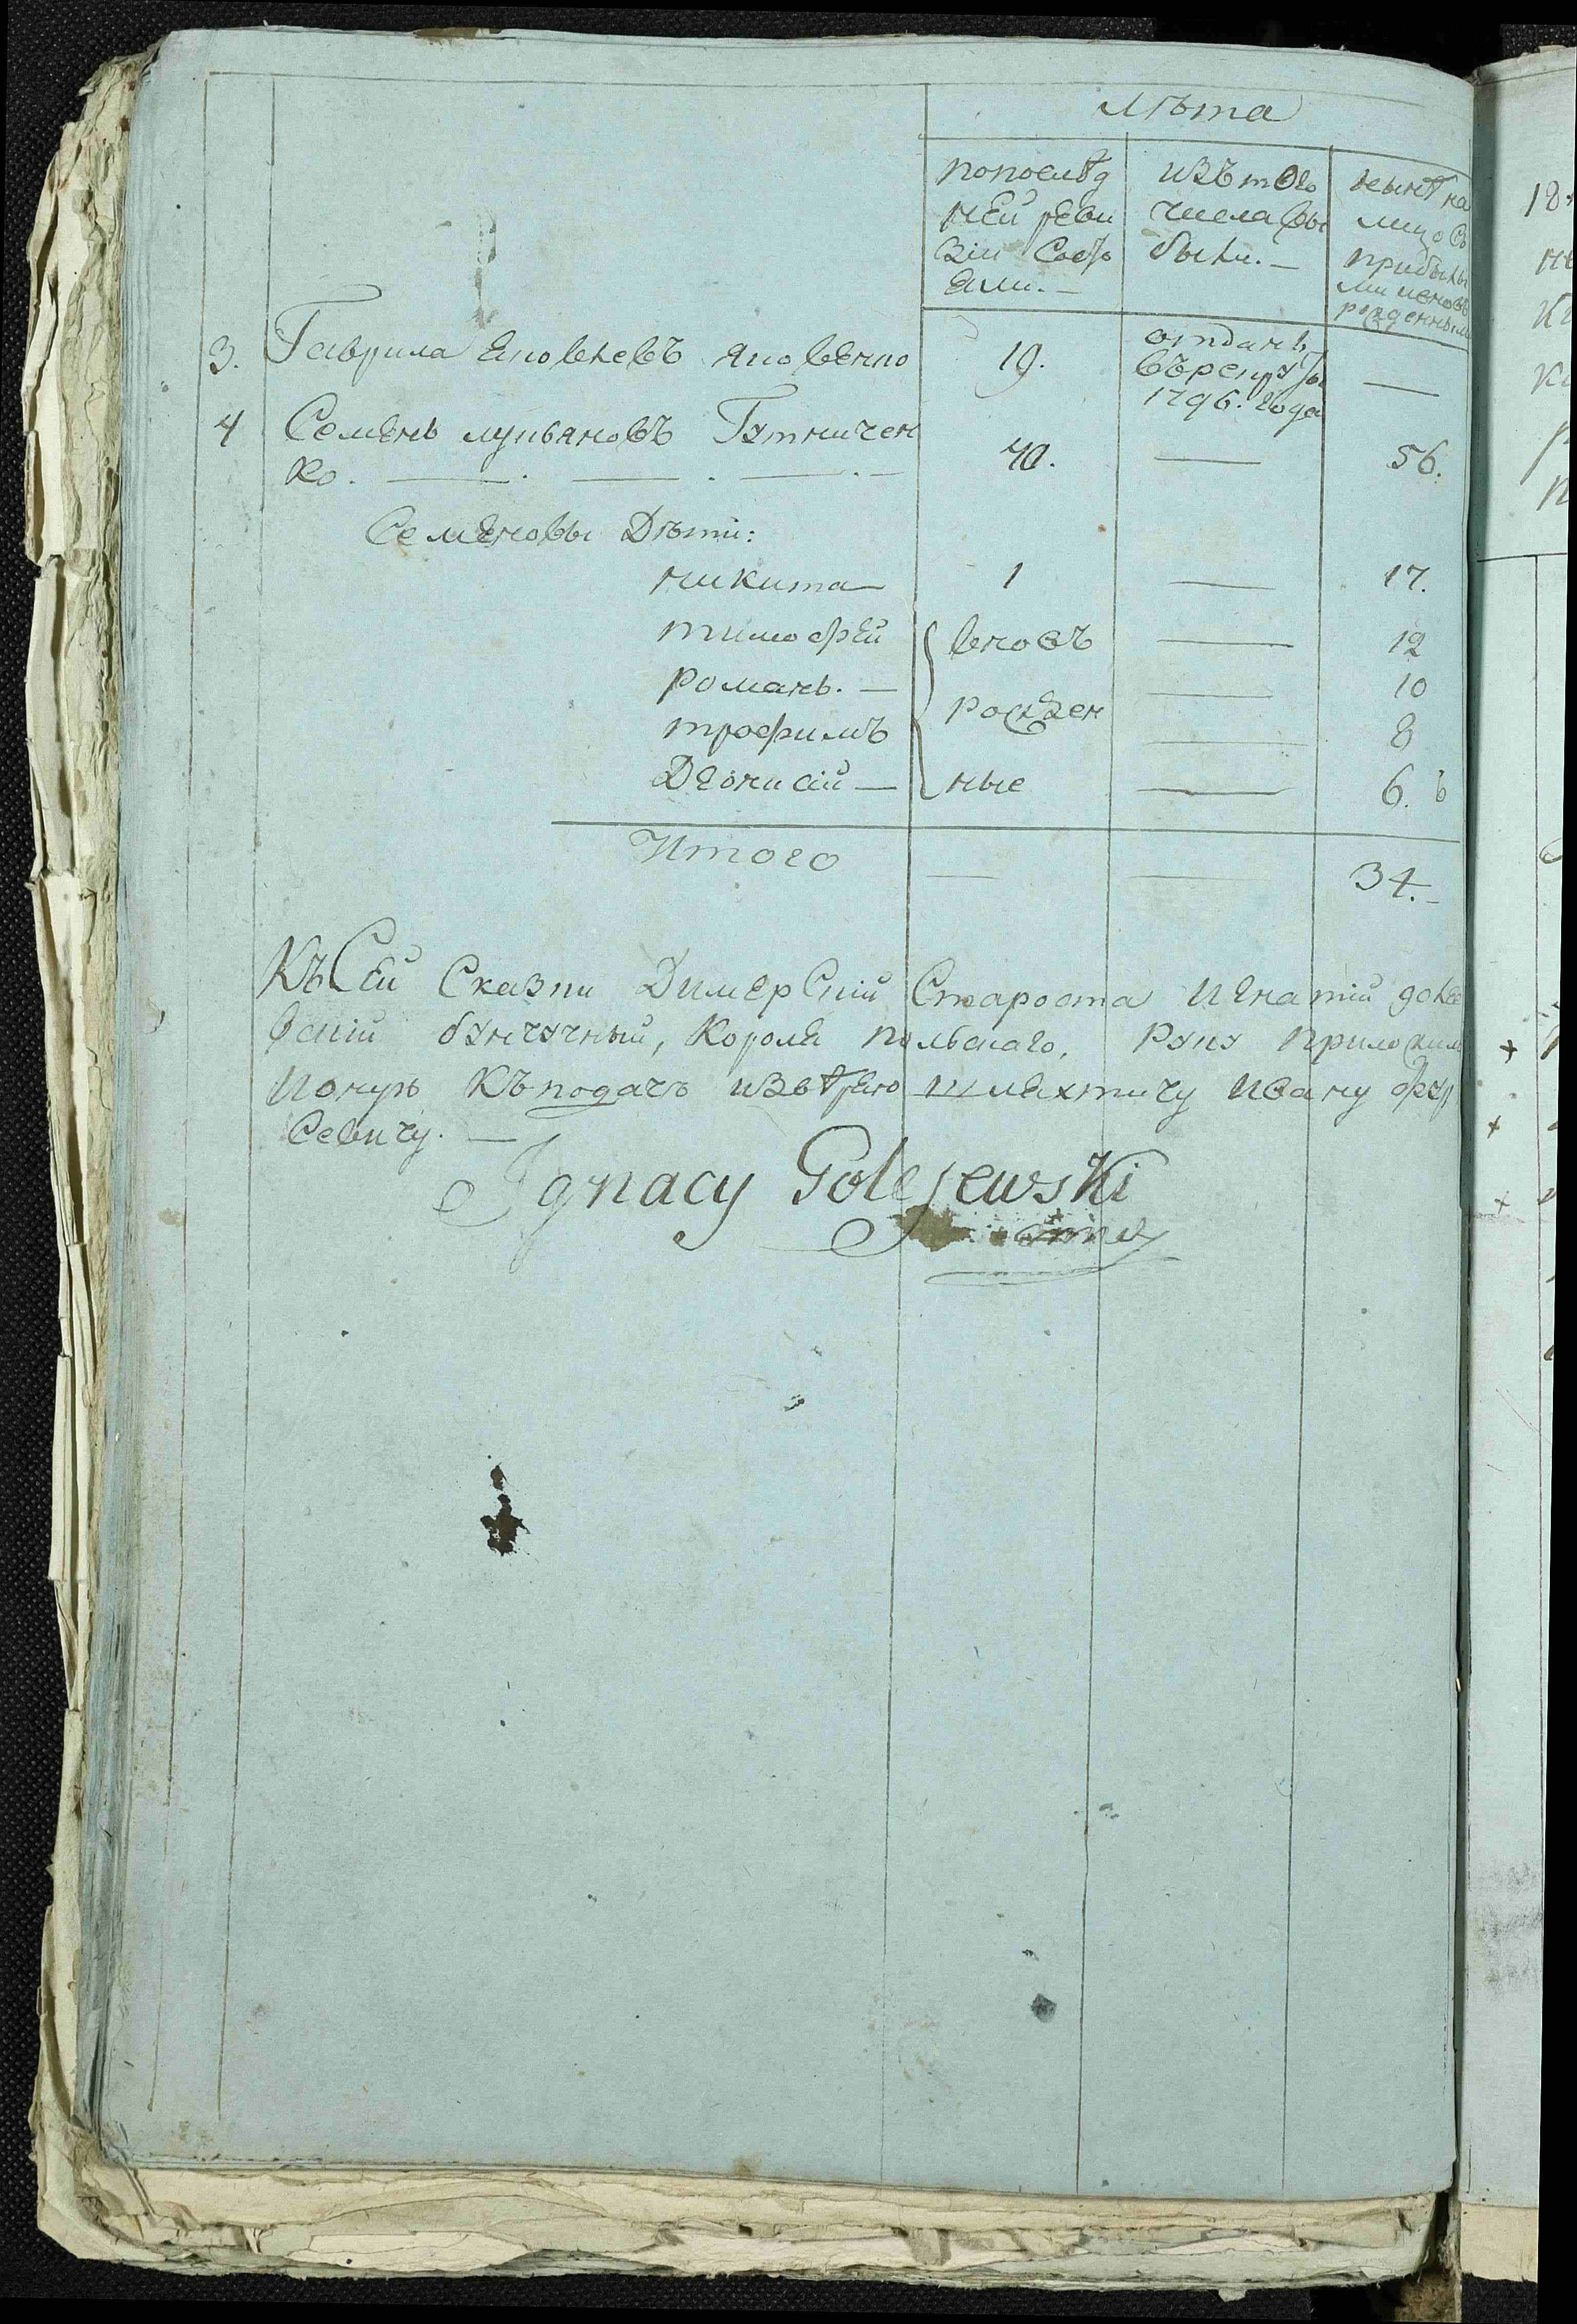 Лѣта
попослѣд
ней реви
зіи состо
яли. —
изъ того
числа вы
были. —
нынѣ на
лицо съ
прибылы
ми и новѡ
рожденными
3. Гаврила Яковлевъ Яковенко 19. отданъ —
въ рекруты
1796. года
4 Семенъ Лукьяновъ Гутничен
ко. — . — . — . — 40. — 56.
Семеновы Дѣти:
никита 1 — 17.
тимофей вновъ — 12
романъ. — — 10
рожден
трофимъ — 8
Деонисій — ные — 6.
Итого — — 34. —
Къ Сей Сказки Димерскій Староста Игнатій
бунчучный, Короля польскаго, руку приложилъ
къ подачѣ извѣряю шляхтичу Ивану Фур
севичу. —
Ignacy Golejewski